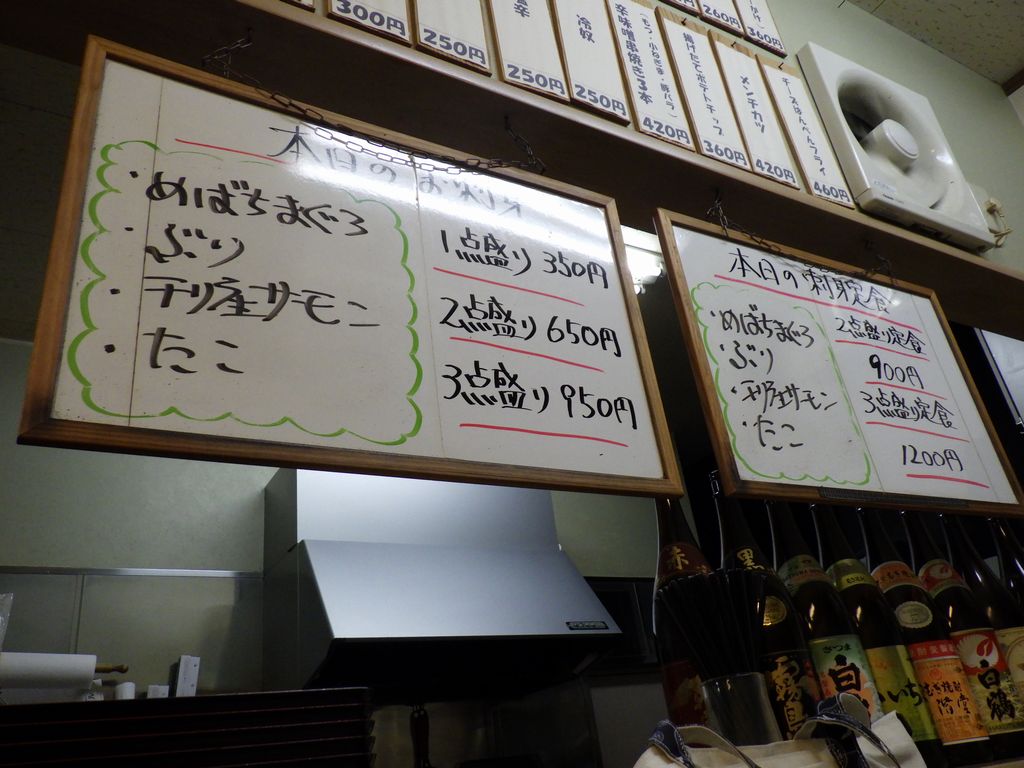 300円
250円
250円
冷奴
250円
辛味噌串焼き3本
420円
揚げたてポテトチップ
360円
メンチカツ
420円
チーズはんぺんフライ
460円
260円
360円
本日のお刺身
・めばちまぐろ
・ぶり
・チリ産サーモン
・たこ
1点盛り 350円
2点盛り 650円
3点盛り 950円
本日の刺身定食
・めばちまぐろ
・ぶり
・チリ産サーモン
・たこ
2点盛り定食
900円
3点盛り定食
1200円
赤
黒
さつま
白
いち
むぎ焼酎
二階堂
白鶴